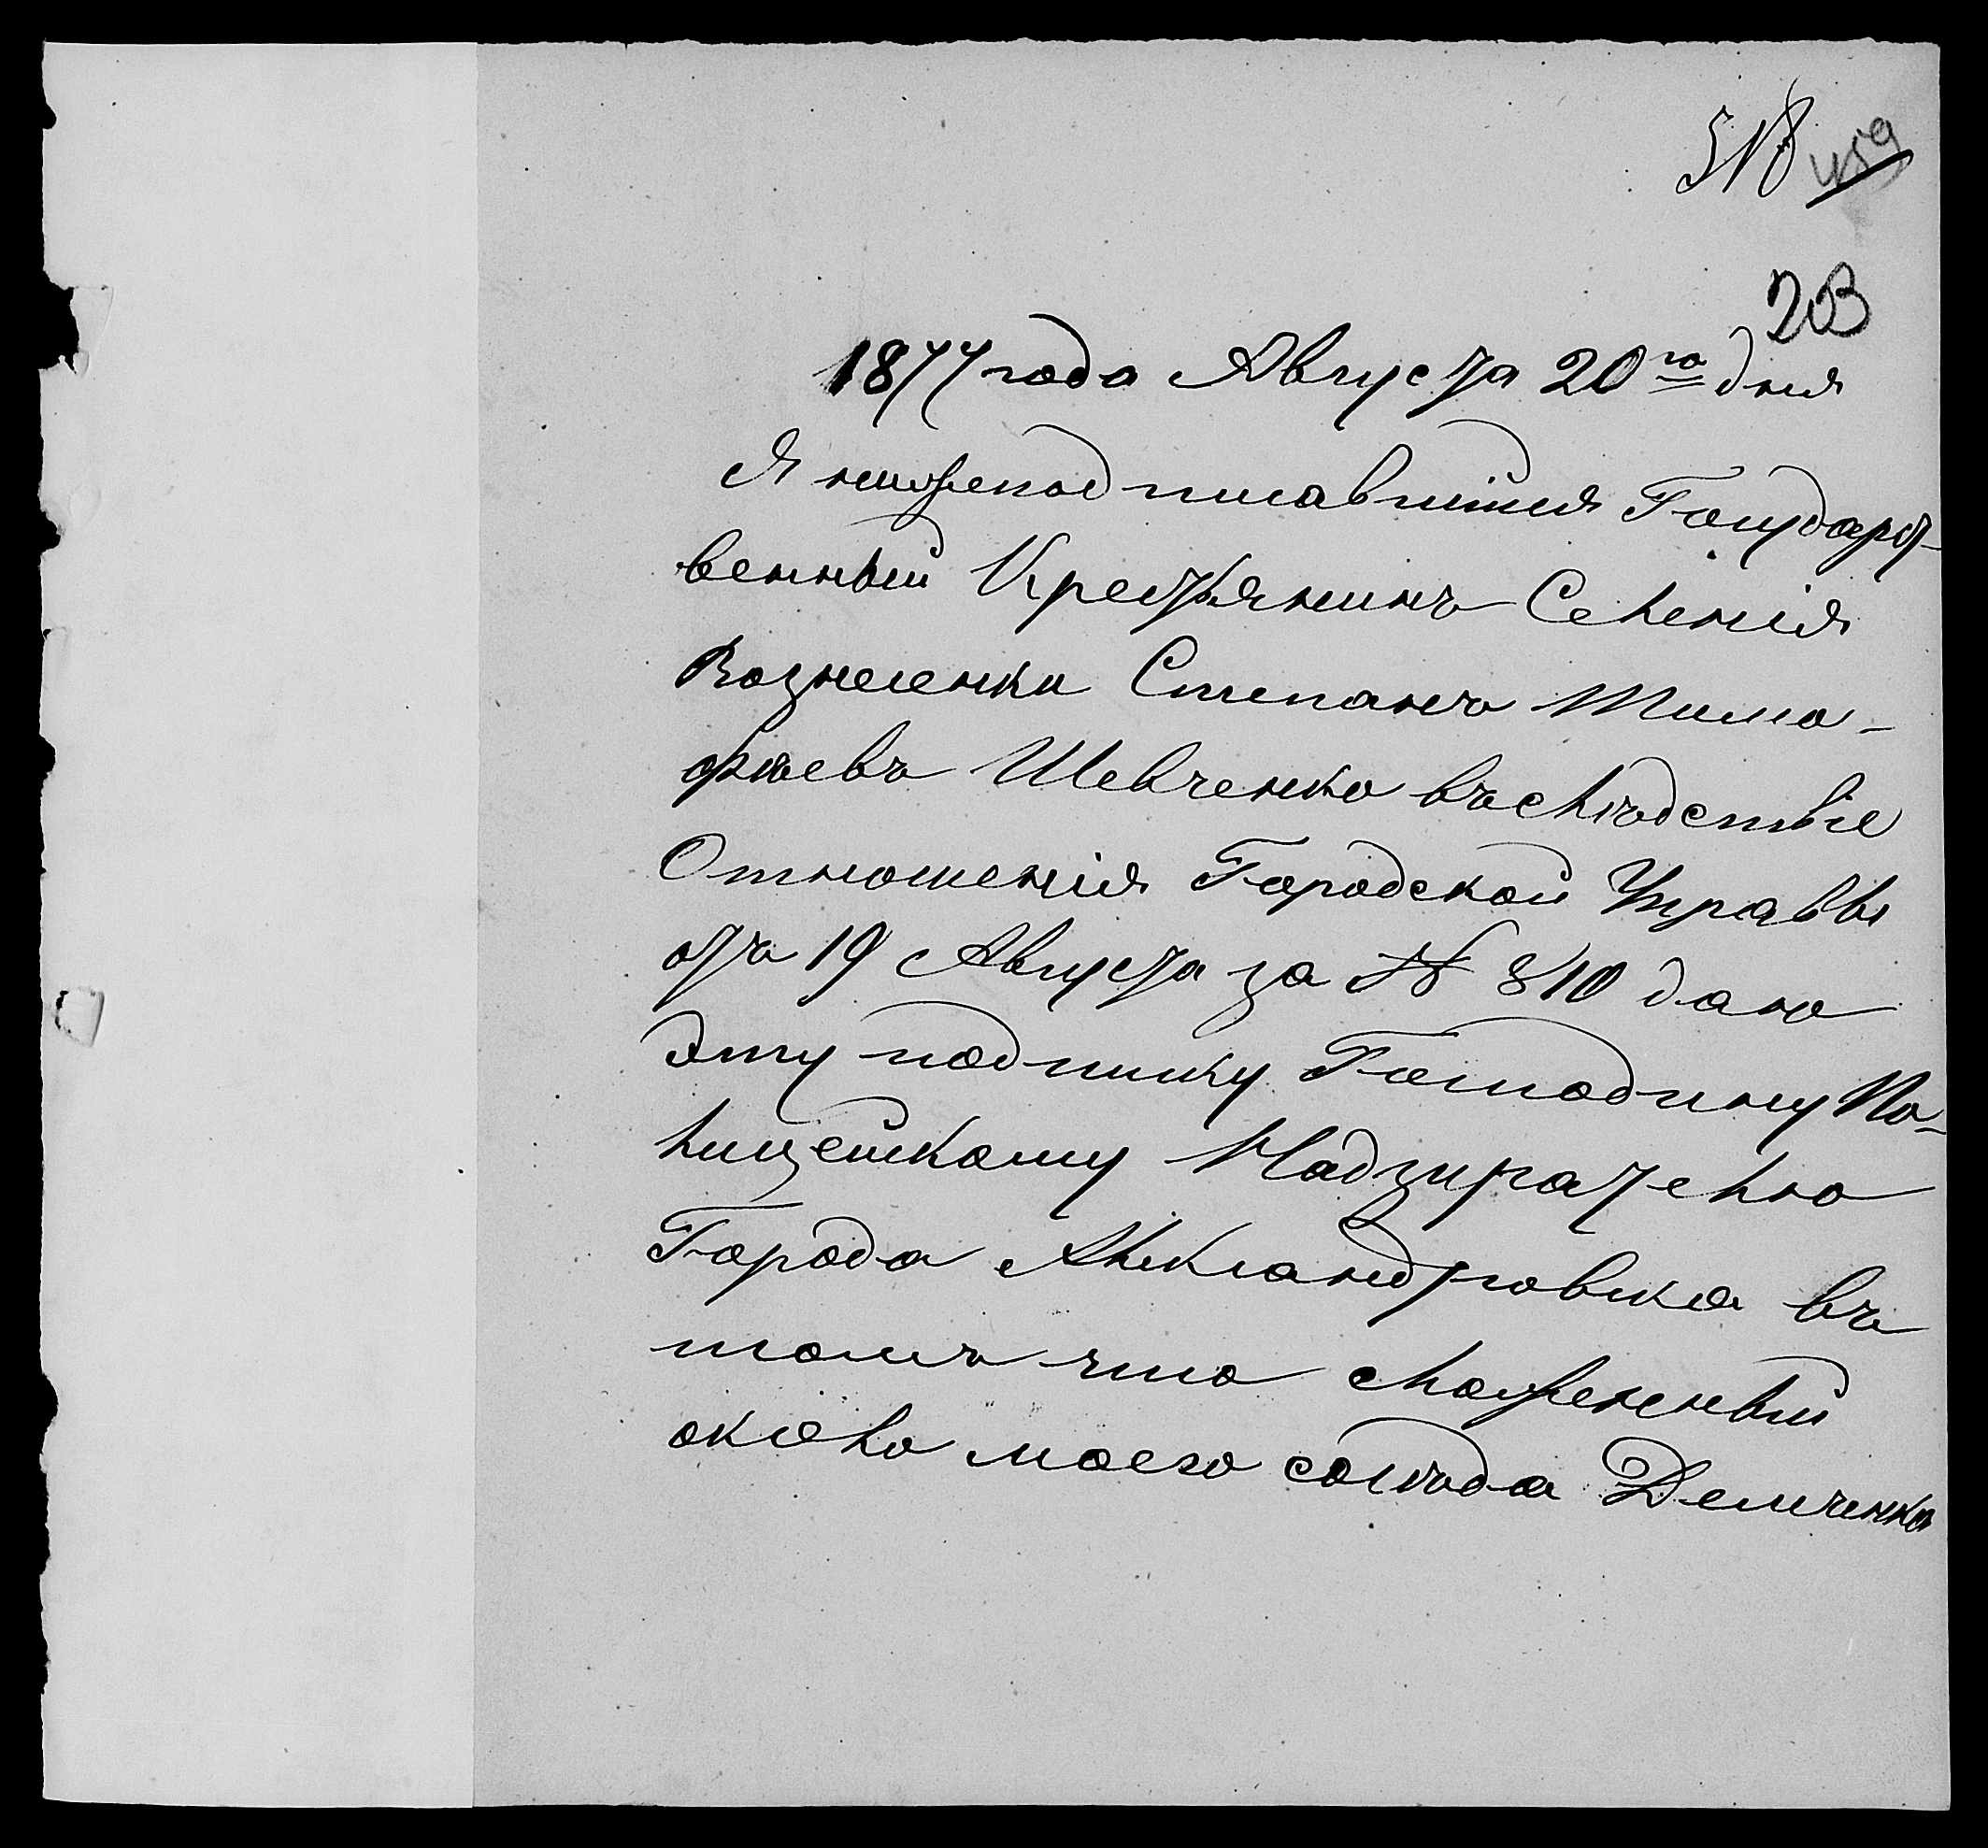 518 459
203
1877 года Августа 20го дня
Я нижеподписавшийся Государст-
венный Крестьянинъ Селенія
Вознесенки Степанъ Тимо-
фѣевъ Шевченко въслѣдствіе
Отношенія Городской Управы
отъ 19 Августа за № 810 даю
Эту подписку Господину По-
лицейскому Надзирателю
Города Александровска въ
томъ что сложенный
около моего сосѣда Демченка